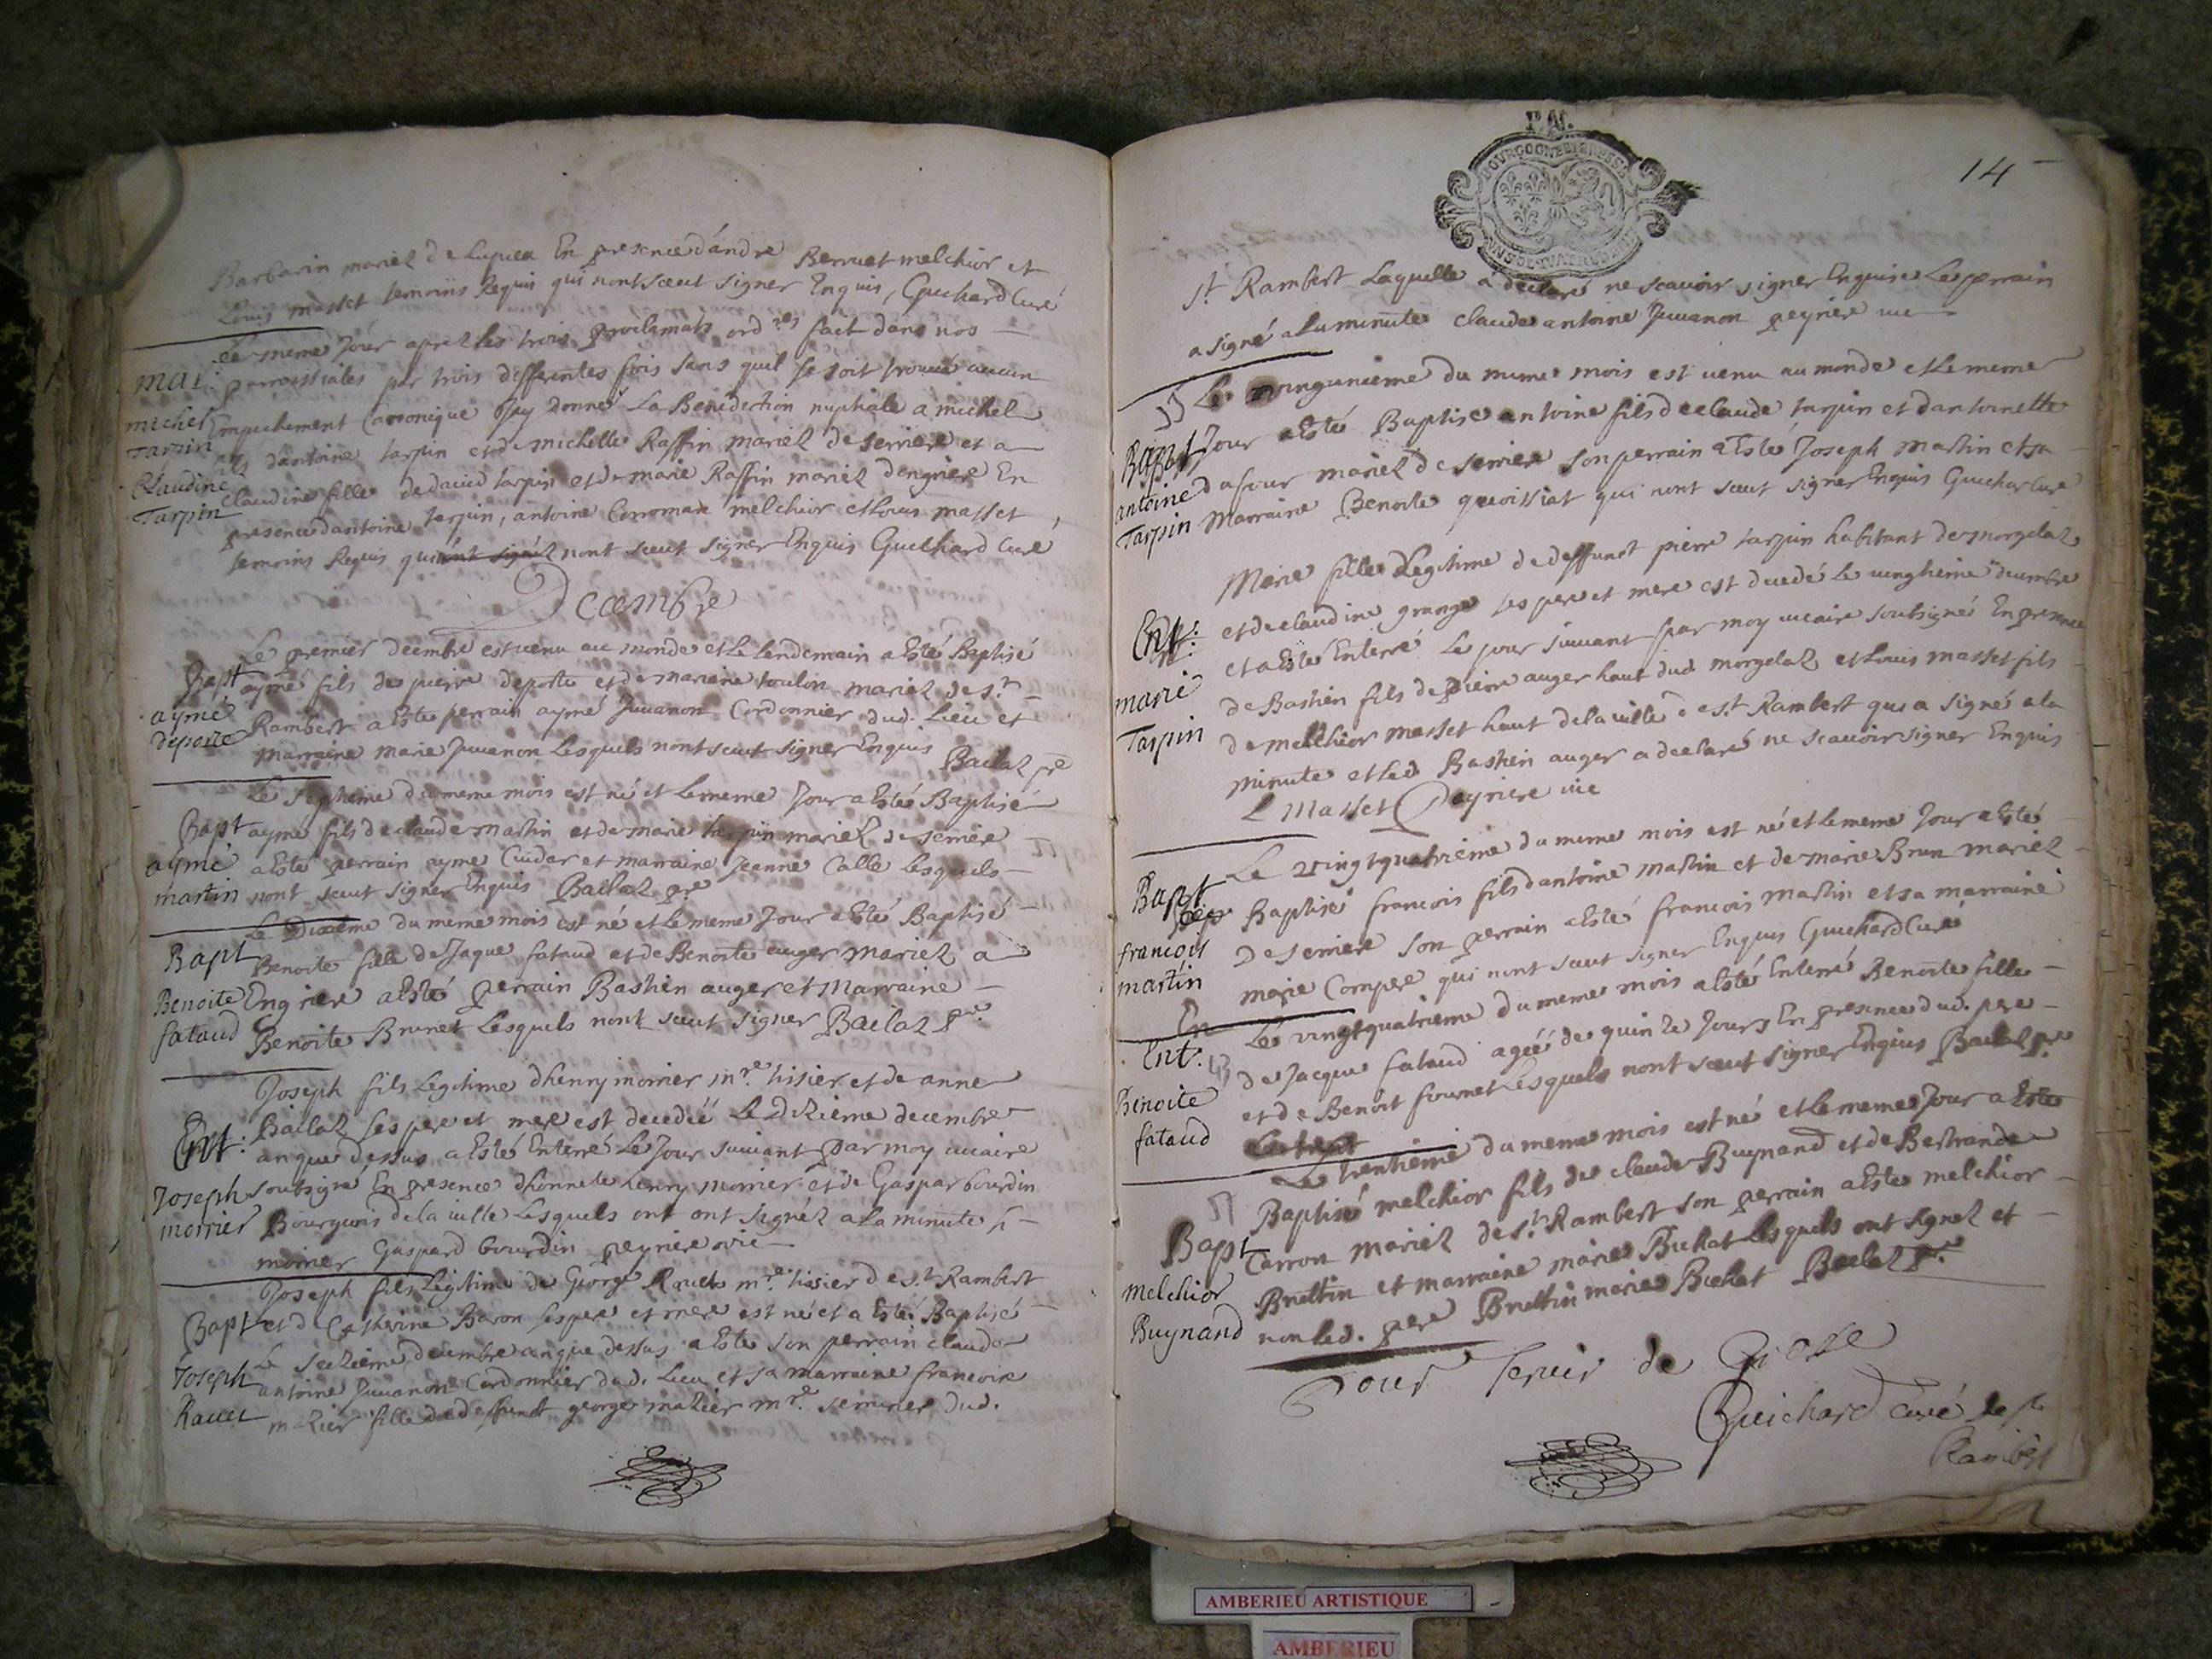 Barbarin mariez de Lupieu En presence dándre Berruet melchior et
Louis masset temoins Requis qui nont sceut signer Enquis, Guichard Curé
Le meme Jour aprez les trois proclamats ordres fait dans nos
mar: parroissiales par trois differentes fois sans quil se soit trouvé aucun
michel Empechement Canonique Jay donné La Benediction nuptiale a michel
Tarpin fils dantoine tarpin et de michelle Raffin mariez de serriere et a
Claudine claudine fille de david tarpin et de marie Raffin mariez dengriere En
Tarpin presence dantoine tarpin, antoine melchior et Louis masset,
temoins Requis qui ont signéz nont sceut signer Enquis Guichard Curé
Decembre
Le premier decembre est venu au monde et Le lendemain a Esté Baptisé
Bapt aymé fils de pierre deporte et de mariane toulon mariez de st
aymé Rambert a Esté perrain aymé Juvanon Cordonnier dud. Lieu et
deporte marraine marie Juvanon Lesquels nont sceut signer Enquis Bailaz pre
Le septieme du meme mois est né et Le meme Jour a Esté Baptisé
Bapt aymé fils de claude martin et de marie tarpin mariez de serriere
aymé a Esté perrain ayme Cuider et marraine Jeanne Calle Lesquels
martin nont sceut signer Enquis Bailaz pre
Le Dixieme du meme mois est né et Le meme Jour a Esté Baptisé
Bapt Benoite fille de Jaque fataud et de Benoite auger mariez a
Benoite Engriere a Esté perrain Bastien auger et Marraine
fataud Benoite Brunet Lesquels nont sceut signer Bailaz pre
Joseph fils Legitime dhenry morrier mre tisier et de anne
Ent: Bailaz ses pere et mere est decedé Le Dixieme decembre
an que dessus a Esté Enterré Le Jour suivant par moy vicaire
Joseph soubsigné En presence dhonnete henry morrier et de Gaspar bourdin
morrier Bourgeois de la ville Lesquels ont ont signéz a La minute h
morrier Gaspard bourdin peyriere vic
Joseph fils Legitime de George Ravet mre tisier de st Rambert
Bapt et de Catherine Baron ses pere et mere est né et a Esté Baptisé
Le seizieme decembre an que dessus a Esté son perrain claude
Joseph antoine Juvanon Cordonnier dud. Lieu et sa marraine francoise
Ravet mazier fille de deffunct george mazier mre dud.
P. AL.
BOURGOGNE BRESSE
14
st Rambert Laquelle á declaré ne scavoir signer Enquise Le perrain
a signé a La minute claude antoine Juvanon peyriere vic
55 Le vingunieme du meme mois est venu au monde et Le meme
Bapt Jour a Esté Baptise antoine fils de claude tarpin et dantoinette
antoine dafour mariez de serriere son perrain a Esté Joseph martin et sa
Tarpin Marraine Benoite quoissiat qui nont sceut signer Enquis Guichar Curé
Marie fille Legitime de deffunct pierre tarpin habitant de morgelaz
Ent: et de claudine grange ses pere et mere est decedé Le vingtieme decembre
et a Esté Enterré Le jour suivant par moy vicaire soubsigné En presence
marie de Bastien fils de pierre auger haut dud morgelaz et Louis masset fils
Tarpin de melchior masset haut de la ville de st Rambert qui a signé a la
minute et Led Bastien auger a declaré ne scavoir signer Enquis
L Masset Peyriere vic
Le vingtquatrieme du meme mois est né et Le meme Jour a Esté
Bapt Baptisé francois fils dantoine martin et de marie Brun mariez
francois De serriere son perrain a Esté francois martin et sa marraine
martin marie Compere qui nont sceut signer Enquis Guichard Curé
En Le vingtquatrieme du meme mois a Esté Enterré Benoite fille
Ent: 43 de Jacque fataud ageé de quinze Jours En presence dud. pere
Benoite et de Benoit fournet Lesquels nont sceut signer Enquis Bailaz pre
fataud
Le trentieme du meme mois est né et Le meme Jour a Este
57 Baptisé melchior fils de claude Buynand et de Bertrande
Bapt Carron mariez de st. Rambert son perrain a Este melchior
melchior Brettin et marraine marie Buchat Lesquels ont signez et
Buynand non Led. pere Brettin marie Buchat Bailaz pre
Pour servir de Grosse
Guichard curé de st
Rambert
AMBERIEU ARTISTIQUE
AMBERIEU